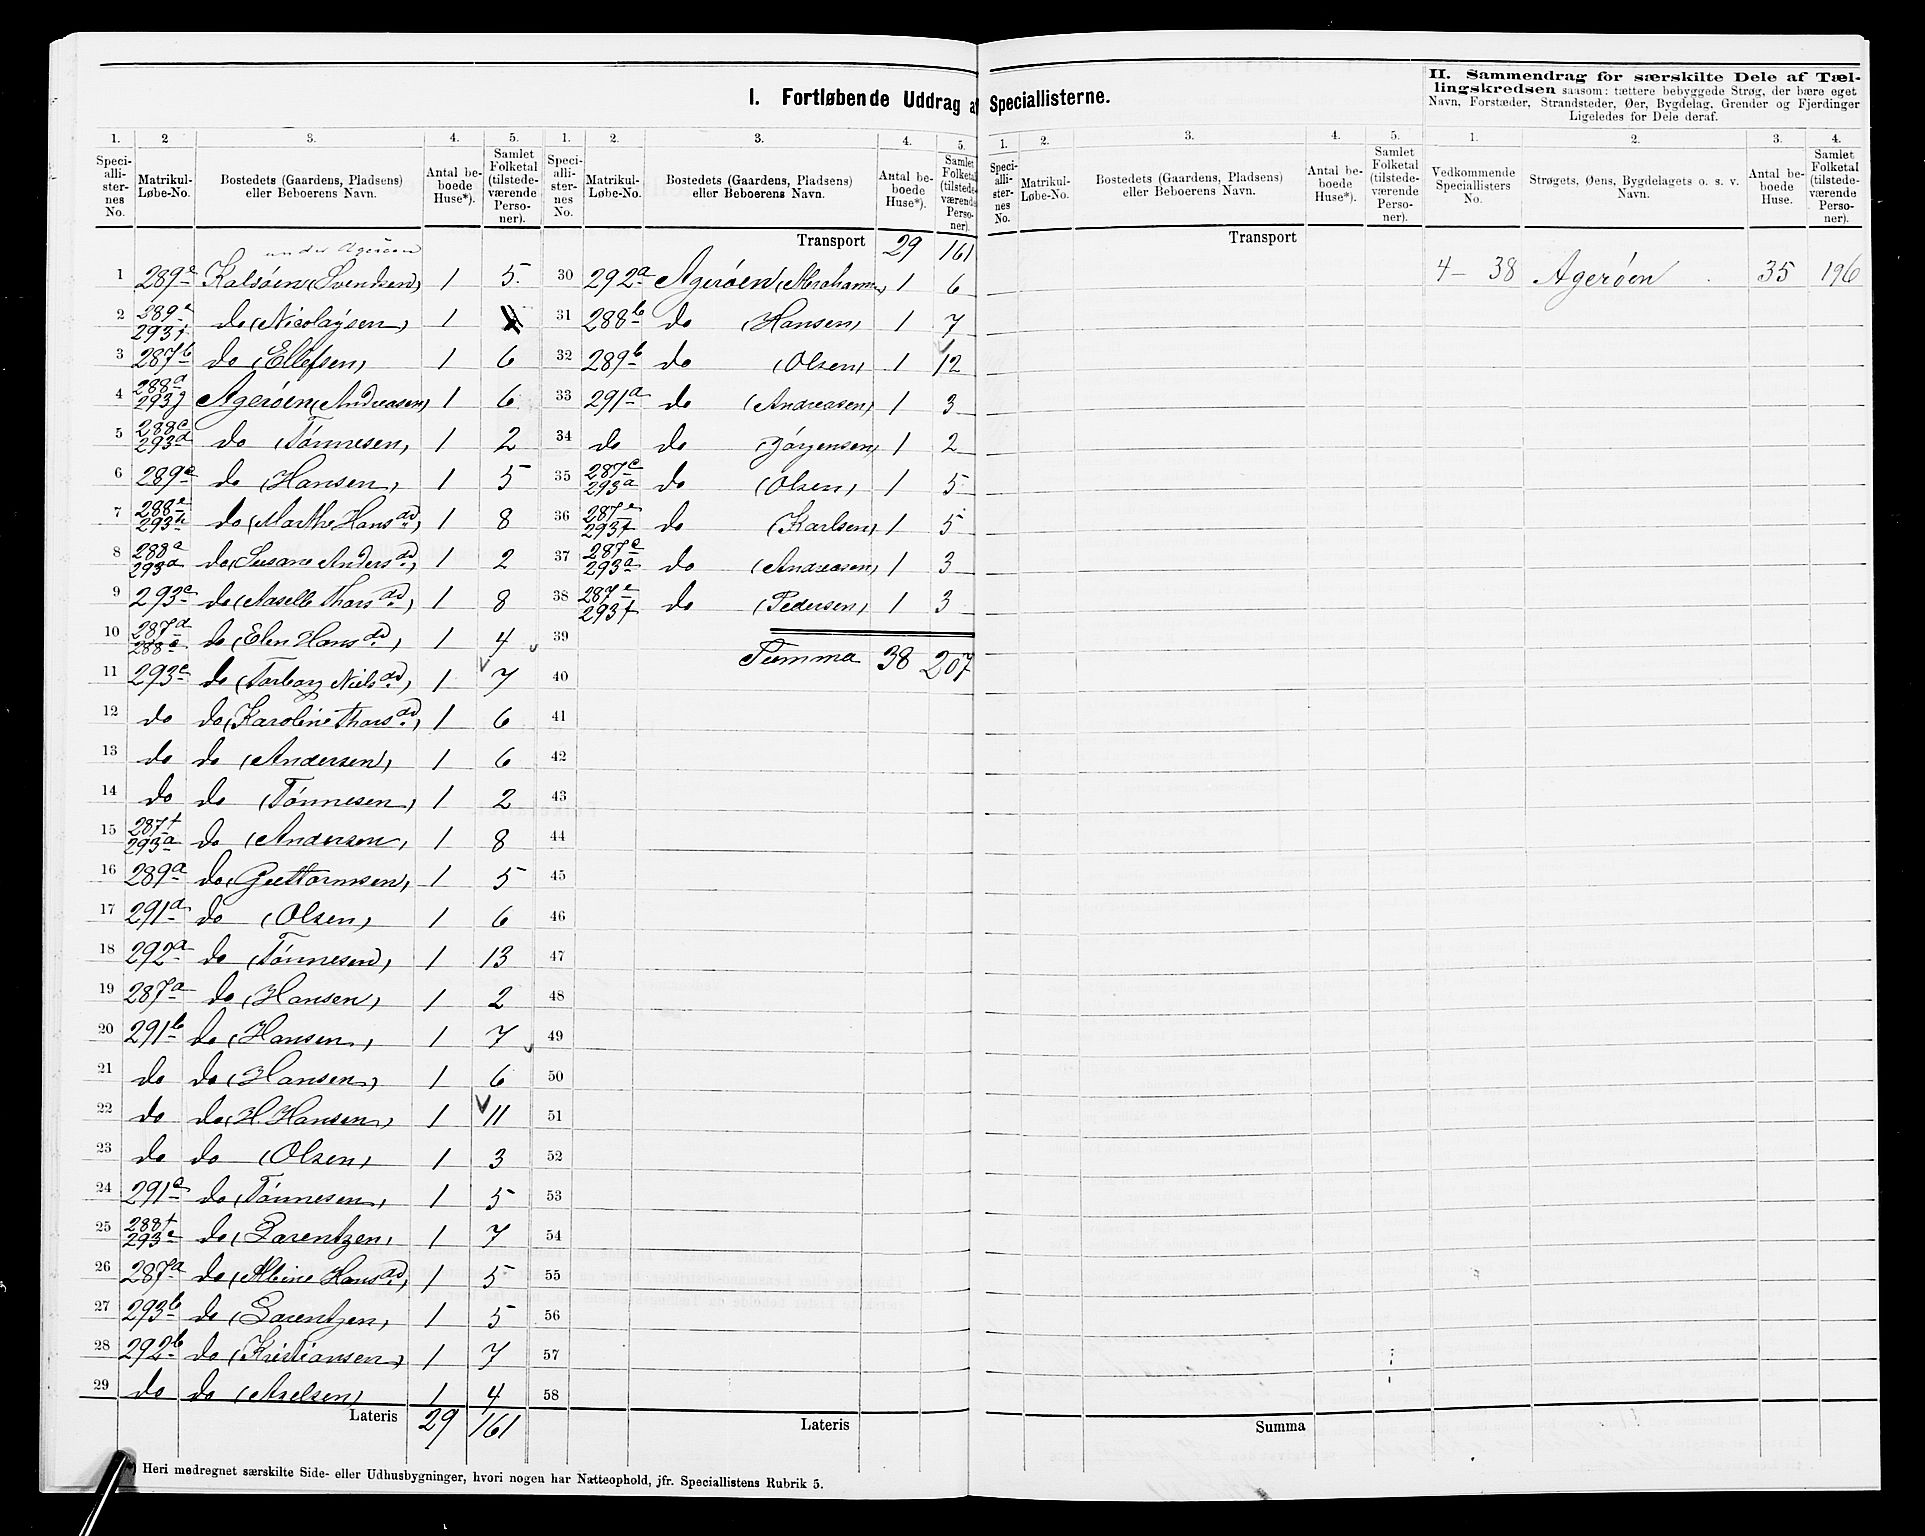 I. Fortløbende Uddrag af Speciallisterne.
1. 2 3. 4. 5. 1. 2. 3. 4. 5.
Speciallisternes No. Matrikul-Løbe-No. Bostedets (Gaardens, Pladsens) eller Beboerens Navn. Antal beboede Huse*). Samlet Folketal (tilstedeværende Personer).
under Agerøen
1 289e Kalsøen (Svendsen) 1 5
2 289e 293f do (Nicolaysen) 1
3 287b do (Ellefsen) 1 6
4 288d 293g Agerøen (Andreasen) 1 6
5 288c 293d do (Tønnesen) 1 2
6 289a do (Hansen) 1 5
7 288e 293h do (Marthe Hansdd) 1 8
8 288a 293a do (Susane Andersdd) 1 2
9 293e do (Aaselle Tharsdd) 1 8
10 287d 288e do (Elen Hansdd) 1 4
11 293e do (Tarborg Nielsdd) 1 7
12 do do (Karoline Tharsdd) 1 6
13 do do (Andersen) 1 6
14 do do (Tønnesen) 1 2
15 287f 293a do (Andersen) 1 8
16 289a do (Guttormsen) 1 5
17 291d do (Olsen) 1 6
18 292a do (Tønnesen) 1 13
19 287a do (Hansen) 1 2
20 291b do (Hansen) 1 7
21 do do (Hansen) 1 6
22 do do (H. Hansen) 1 11
23 do do (Olsen) 1 3
24 291a do (Tønnesen) 1 5
25 288f 293e do (Larentzen) 1 7
26 287a do (Albine Hansdd) 1 5
27 293b do (Larentzen) 1 5
28 292b do (Kristiansen) 1 7
29 do do (Axelsen) 1 4
Lateris 29 161
*) Heri medregnet særskilte Side- eller Udhusbygninger, hvori nogen har Natteophold, jfr. Speciallistens Rubrik 5.
Speciallisternes No. Matrikul-Løbe-No. Bostedets (Gaardens, Pladsens) eller Beboerens Navn. Antal beboede Huse*). Samlet Folketal (tilstedeværende Personer).
Transport 29 161
30 292a Agerøen (Abrahams) 1 6
31 288b do (Hansen) 1 7
32 289b do (Olsen) 1 12
33 291a do (Andreasen) 1 3
34 do do (Jørgensen) 1 2
35 287c 293a do (Olsen) 1 5
36 287e 293f do (Karlsen) 1 5
37 287c 293a do (Andreasen) 1 3
38 287e 293f do (Pedersen) 1 3
39
Summa 38 207
40
41
42
43
44
45
46
47
48
49
50
51
52
53
54
55
56
57
58
Lateris
1. 2. 3. 4. 5.
Speciallisternes No. Matrikul-Løbe-No. Bostedets (Gaardens, Pladsens) eller Beboerens Navn. Antal beboede Huse*). Samlet Folketal (tilstedeværende Personer).
Transport
Summa
II. Sammendrag for særskilte Dele af Tællingskredsen saasom: tættere bebyggede Strøg, der bære eget
Navn, Forstæder, Strandsteder, Øer, Bygdelag, Grender og Fjerdinger
Ligeledes for Dele deraf.
1. 2. 3. 4.
Vedkommende Speciallisters No. Strøgets, Øens, Bygdelagets o. s. v. Navn. Antal beboede Huse. Samlet Folketal (tilstedeværende Personer).
4 - 38 Agerøen 35 196